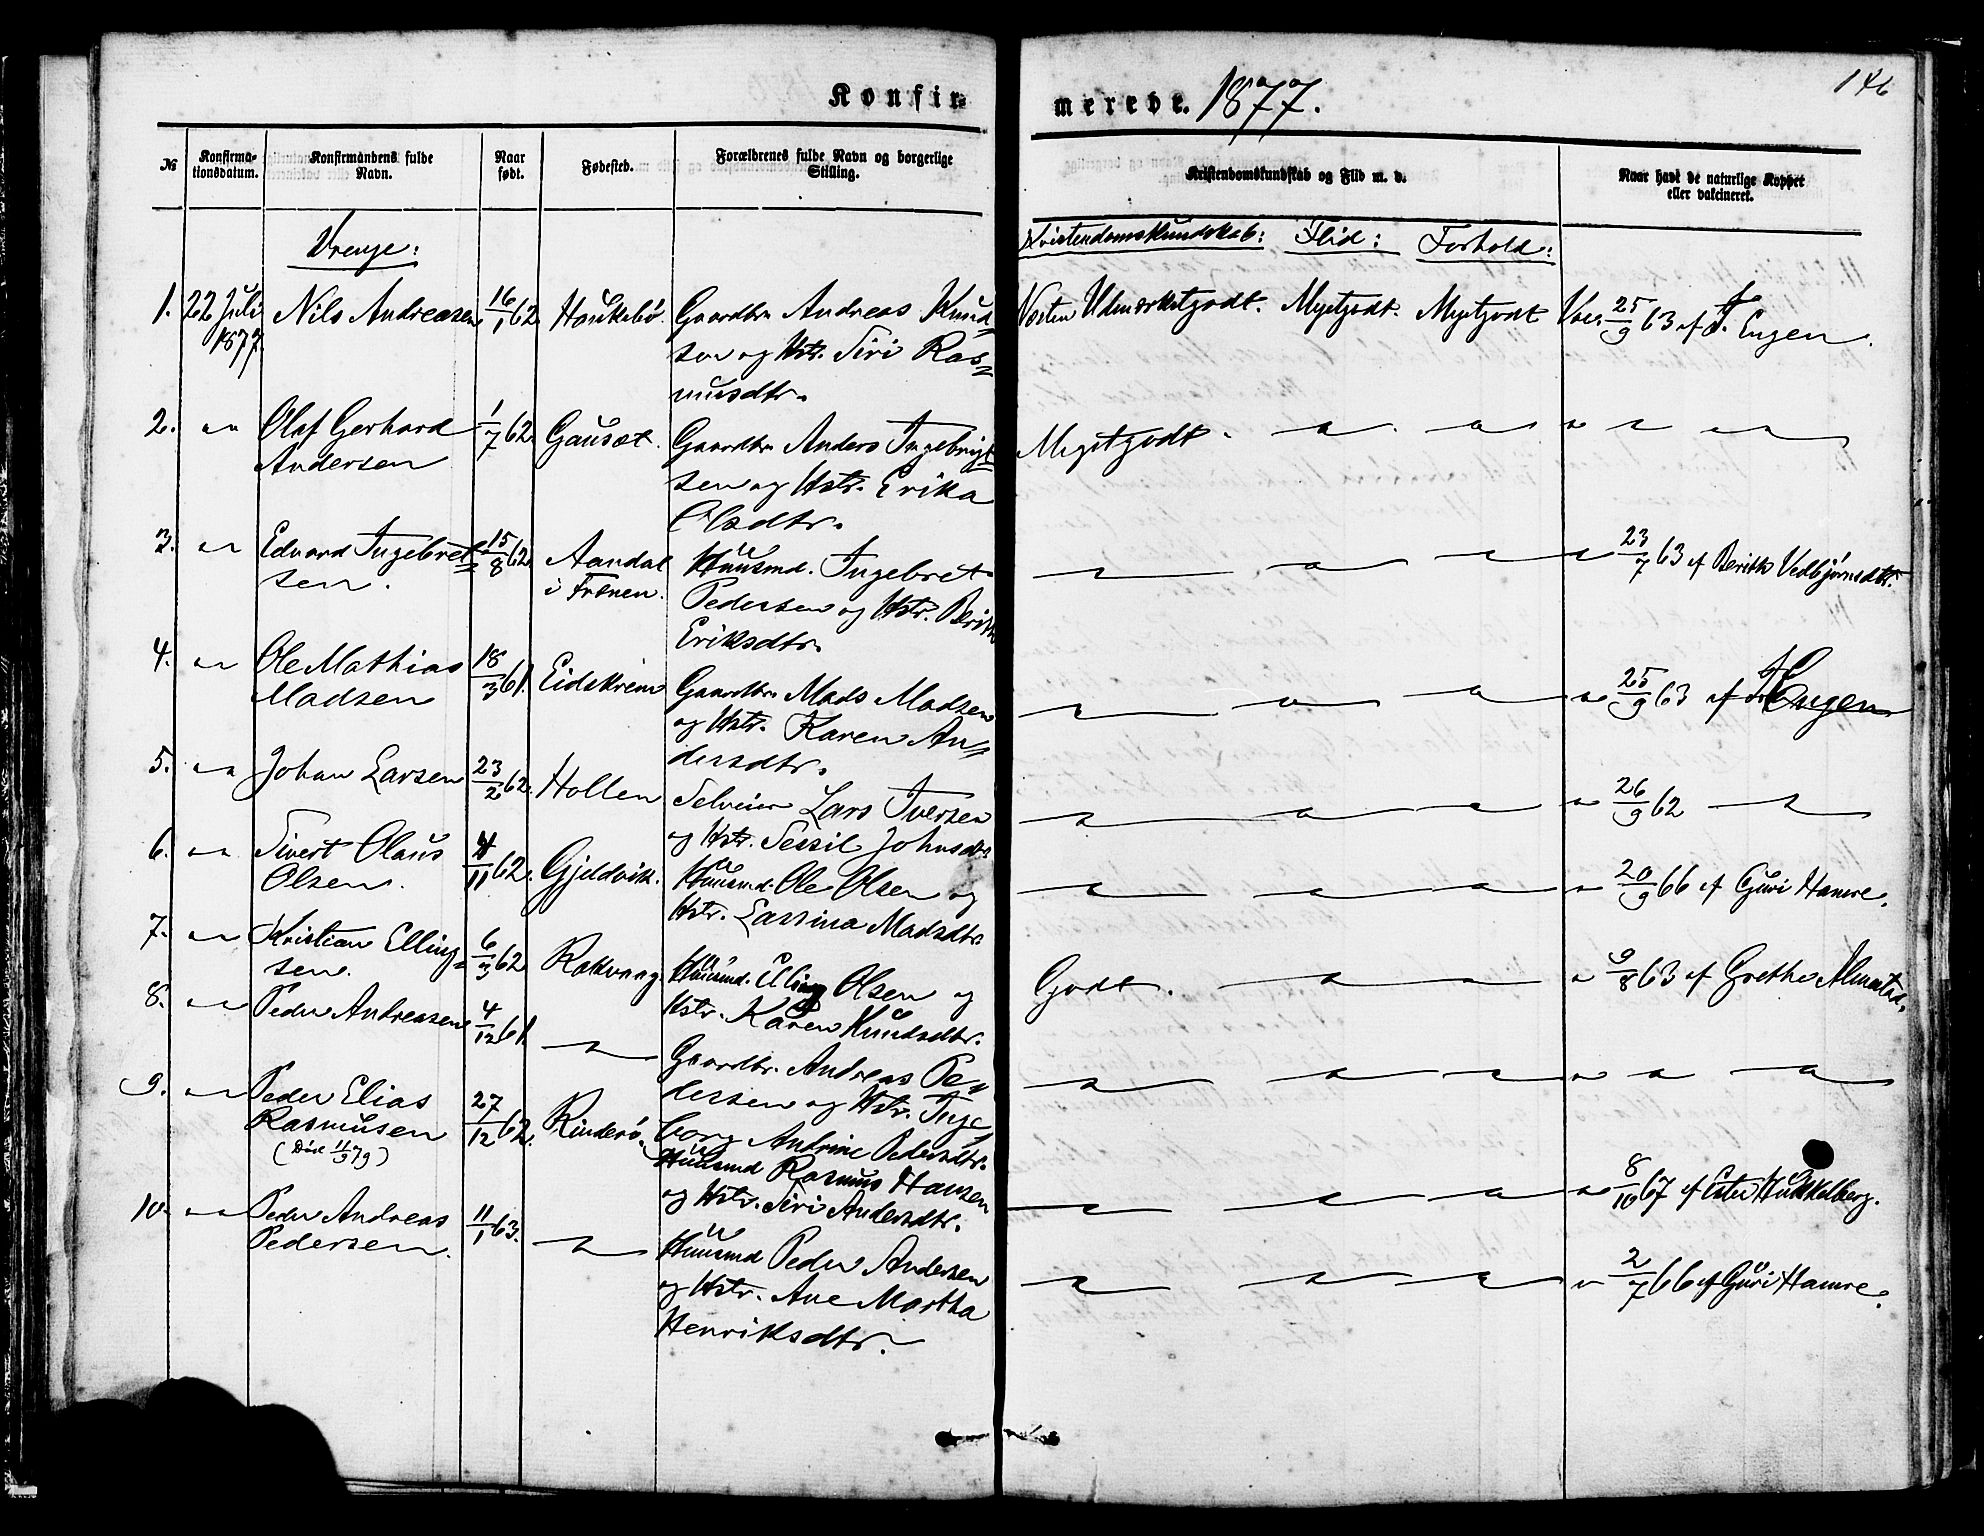 146
Konfir=
merede. 1877.
№
Konfirma-
tionsdatum.
Konfirmandens fulde
Navn.
Naar
født.
Fødested.
Forældrenes fulde Navn og borgerlige
Stilling.
Kristendomskundskab og Flid m. v.
Naar havt de naturlige Kopper
eller vakcineret.
Drenge:
Kristendomskundskab: Flid: Forhold:
1. 22 Juli Nils Andreasen 16/1 62 Haukebø. Gaardbr. Andreas Knud=
1877. sen og Hstr. Siri Ras=
musdtr.
Næsten Udmærketgodt. Megetgodt. Megetgodt Vac. 25/9 63 af J. Engen.
2. " Olaf Gerhard 1/7 62. Gausæt. Gaardbr. Anders Ingebrigt
Andersen sen og Hstr. Erika
Olsdtr.
Megetgodt. " " " " "
3. " Edvard Ingebret= 15/8 62 Aandal Huusmd. Ingebret
sen. i Frænen. Pedersen og Hstr. Berith
Eriksdtr.
" " " " 23/7 63 af Berith Vedbjørnsdtr.
4. " Ole Mathias 18/3 61. Eidskrem Gaardbr. Mads Madsen
Madsen og Hstr. Karen An=
dersdtr.
" " " " 25/9 63 af J. Engen
5. " Johan Larsen 23/2 62. Hollen Selveier Lars Iversen
og Hstr. Sessil Johnsdtr
" " " " 26/9 62 "
6. " Sivert Olaus 4/11 62. Gjeldvik. Huusmd. Ole Olsen og
Olsen. Hstr. Lassina Madsdtr
" " " " 20/9 66 af Guri Hamre.
7. " Kristian Elling= 6/3 62 Rakvaag Huusmd. Elling Olsen og
sen. Hstr. Karen Knudsdtr.
Godt. " " " 9/8 63 af Grethe Almestad.
8. " Peder Andreasen 4/12 61. " Gaardbr. Andreas Pe=
dersen og Hstr. Inge
borg Andrine Pedersdtr.
" " " " " "
9. " Peder Elias 27/12 62. Rinderø. Huusmd Rasmus Hansen
Rasmusen og Hstr. Siri Andersdtr.
(Død 11/9 79)
" " " " 8/10 67 af Ester Hukkelberg.
10. " Peder Andreas 11/1 63. " Huusmd Peder Andersen
Pedersen. og Hstr. Ane Martha
Henriksdtr.
" " " " 2/7 66 af Guri Hamre.